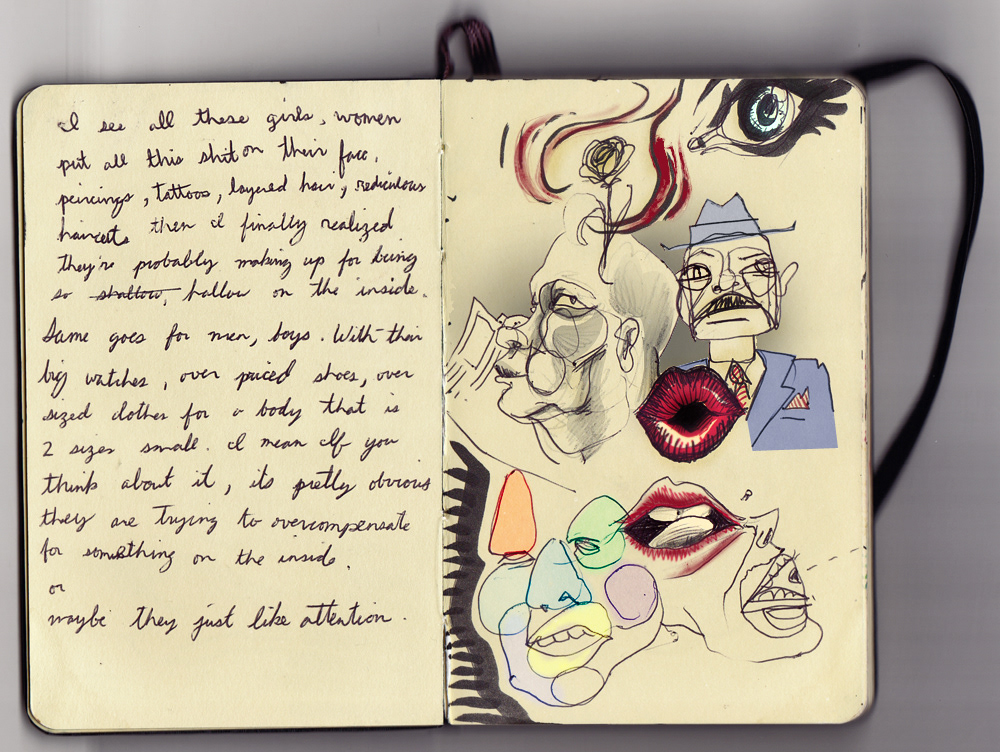 I see all these girls, women
put all this shit on their face,
peircings, tattoos, layered hair, rediculous
haircuts then I finally realized
they're probably making up for being
so shallow, hallow on the inside.
Same goes for men, boys. With their
big watches, over priced shoes, over
sized clothes for a body that is
2 sizes small. I mean If you
think about it, its pretty obvious
they are trying to overcompensate
for something on the inside.
or
maybe they just like attention.
R